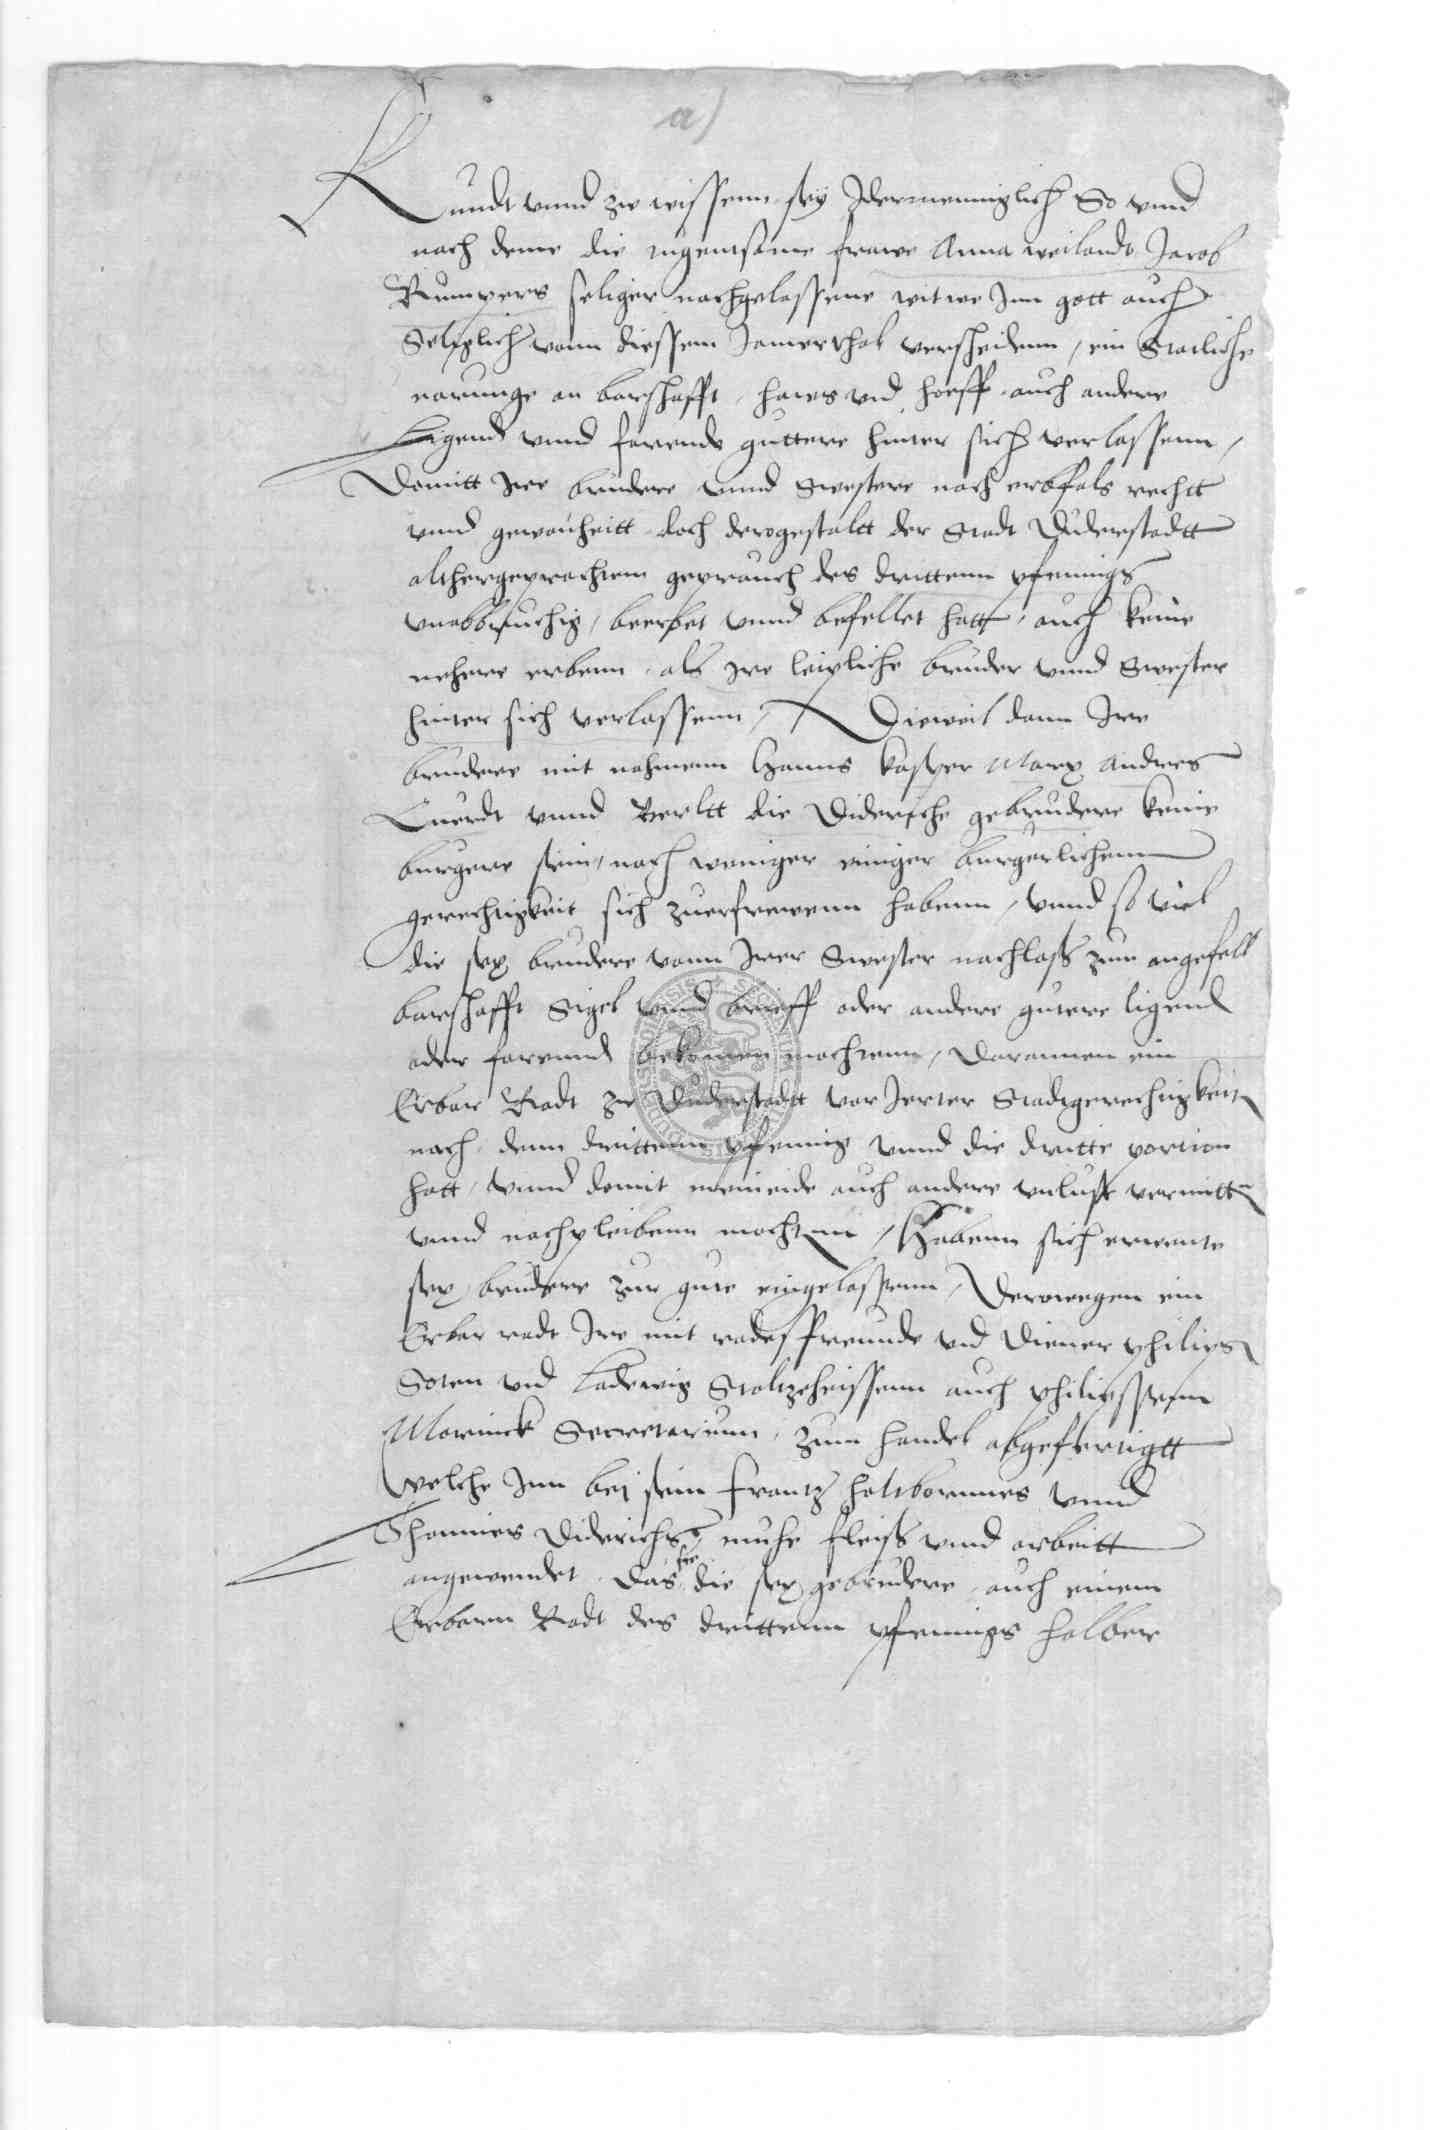 a)
Kundt vnnd zw wissenn sey Idermenniglich So vnnd
nach deme die tugentsame frawe Anna weilandt Jacob
Rumpers seliger nachgelassene witwe Inn gott auch
Seliglich vonn diessem Jamerthal verscheidenn / ein Statliche
narunge an barschafft, haws vnd hoeff auch andere
ligend vnnd farende guttere hinter sich verlassenn /
Domitt Ire brudere vnnd Swestere nach erbfals rechtt
vnnd gewonheitt doch derogestaltt der Stadt Duderstadtt
althergeprachtem geprauch des drittenn pfennings
vnabbruchig / beerbet vnnd befellet hatt / auch keine
nehere erbenn, als Ire leipliche bruder vnnd Swester
hinter sich verlassenn / Dieweil dann Ire
brudere mit nahmenn Hanns kasper Marx Andres
Cuerdt vnnd Berltt die Diderische gebrudere keine
burgere sein / noch weniger einiger burgerlichenn
gerechtigkeit sich zuerfrewenn habenn / vnnd so viel
die sex brudere vonn Irer Swester nachlass zum angefell
barschafft Sigel vnnd brieff oder andere gutere ligend
oder farennd bekomen mochtenn / Darannen ein
Erbar Radt zw Duderstadtt vor Irer Stadtgerechtigkeit
nach denn drittenn pfennig vnnd die dritte portion
hatt / vnnd domit meineide auch andere vnlust vermitt
vnnd nachpleibenn mochtenn / Habenn sich ernente
sex brudere zur gute eingelassenn / Derowegen ein
Erbar radt Ire mit radesfreunde vnd Diener philips
Soten vnd Ludewig Stoltzeheissenn auch philipssenn
Morinck Secretarium, zum handel abgefertigtt
welche Inn bei sein Frantz holtbornnes vnnd
Thonnies Diderichs / muhe fleiss vnnd arbeitt
angewendet, das sie die sex gebrudere auch einem
Erbarn Radt des drittenn pfennings halber